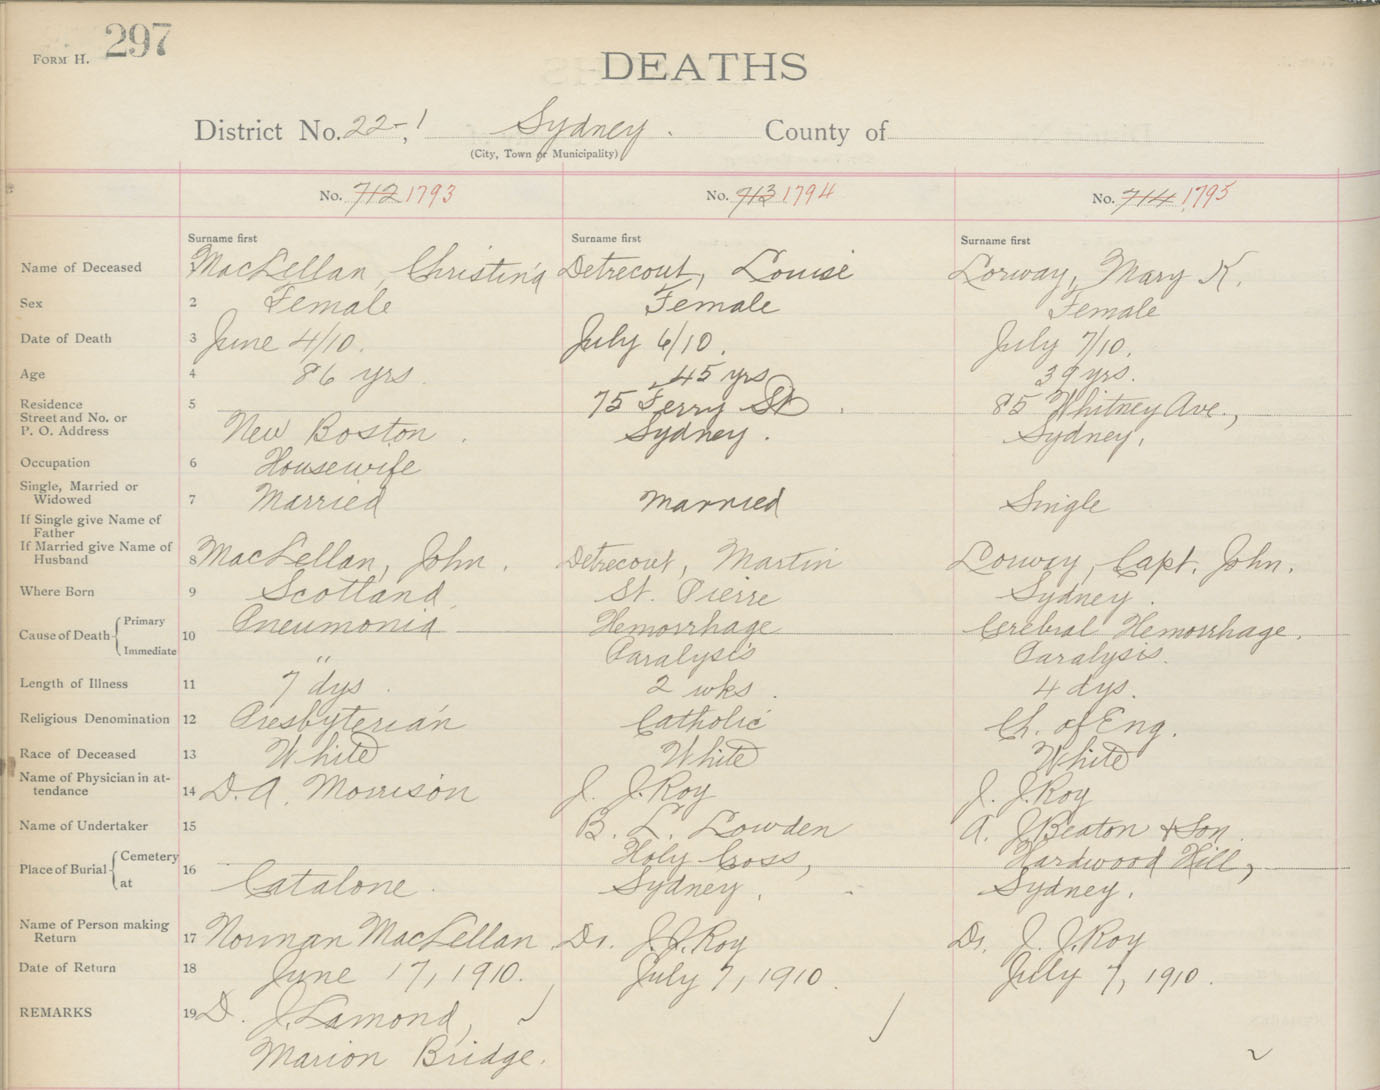 FORM H. 297
DEATHS
District No. 22-, 1 Sydney. County of
(City, Town or Municipality)
No. 712 1793 No. 713 1794 No. 714 1795
Surname first Surname first Surname first
Name of Deceased 1 MacLellan, Christina Detrecout, Louise Lorway, Mary K.
Sex 2 Female Female Female
Date of Death 3 June 4/10. July 6/10. July 7/10.
Age 4 86 yrs. 45 yrs 39 yrs.
Residence 5 75 Ferry St. 85 Whitney Ave.,
Street and No. or
P. O. Address New Boston. Sydney. Sydney.
Occupation 6 Housewife
Single, Married or
Widowed 7 Married Married Single
If Single give Name of
Father
If Married give Name of
Husband 8 MacLellan, John. Detrecout, Martin Lorway, Capt. John.
Where Born 9 Scotland St. Pierre Sydney.
Cause of Death Primary 10 Pneumonia Hemorrhage Cerebral Hemorrhage.
Immediate " Paralysis Paralysis.
Length of Illness 11 7 dys. 2 wks. 4 dys.
Religious Denomination 12 Presbyterian Catholic Ch. of Eng.
Race of Deceased 13 White White White
Name of Physician in at-
tendance 14 D. A. Morrison J. J. Roy J. J. Roy
Name of Undertaker 15 B. L. Lowden A. J. Beaton & Son
Place of Burial Cemetery 16 Holy Cross, Hardwood Hill,
at Catalone. Sydney. Sydney.
Name of Person making
Return 17 Norman MacLellan. Dr. J. J. Roy Dr. J. J. Roy
Date of Return 18 June 17, 1910. July 7, 1910. July 7, 1910.
REMARKS 19 D. J. Lamond,
Marion Bridge.